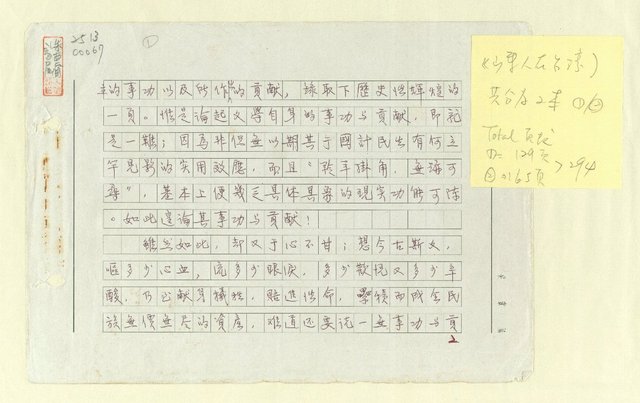 2513
00067
①
的事功以及所作的貢獻，錄取下歷史性輝煌的
一頁。惟是論起文學自身的事功与貢獻，即祇
是一難；因為非但無以期其于國計民生有何立
竿見影的實用效應，而且“羚羊掛角，無跡可
尋”，基本上便幾乏具体具象的現實功能可陳
。如此遑論其事功与貢獻！
雖然如此，却又于心不甘；想今古斯文，
嘔多少心血，流多少眼淚，多少歡悅又多少辛
酸，乃已獻身犧牲，賠進性命，纍積而成全民
族無價無尽的資産，難道还要說一無事功与貢
共分为2本 ①②
Total 頁數
①= 129頁
②= 165頁
> 294